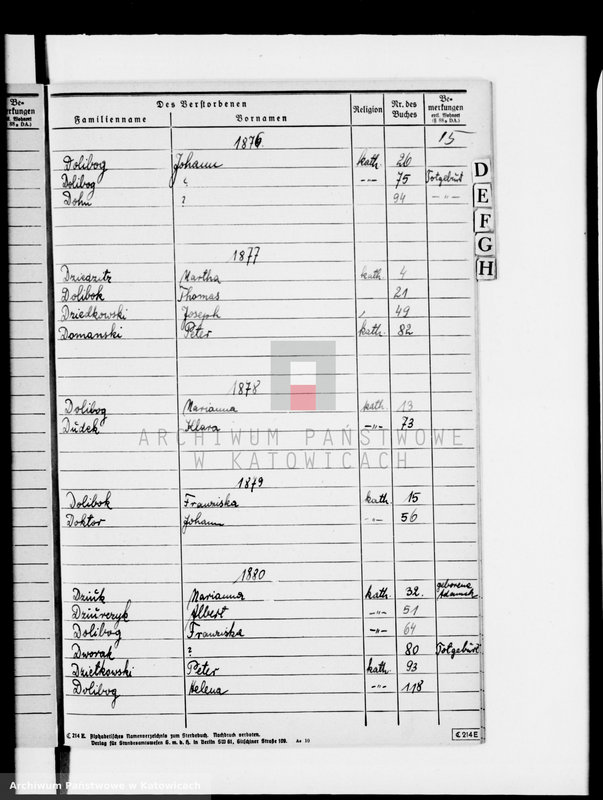 Be-
merkungen
evtl. Wohnort
(§ 88₂ DA.)
Des Verstorbenen
Familienname Vornamen Religion Nr. des Buches Be-
merkungen
evtl. Wohnort
(§ 88₂ DA.)
1876 15
Dolibog Johann kath. 26
Dolibog ? -"- 75 Totgeburt
Dohn ? 94 -"-
D
E
F
G
H
1877
Dziedzitz Martha kath. 4
Dolibok Thomas 21
Dziedkowski Joseph 49
Domanski Peter kath. 82
1878
Dolibog Marianna kath. 13
Dudek Klara -"- 73
ARCHIWUM PAŃSTWOWE
W KATOWICACH
1879
Dolibok Franziska kath. 15
Doktor Johann -"- 56
1880
Dziuk Marianna kath. 32. geborene Adamek
Dziurczyk Albert -"- 51
Dolibog Franziska -"- 64
Dworak ? 80 Totgeburt
Dzietkowski Peter kath. 93
Dolibog Helena -"- 118
C 214 E. Alphabetisches Namenverzeichnis zum Sterbebuch. Nachdruck verboten.
Verlag für Standesamtswesen G. m. b. H. in Berlin SW 61, Gitschiner Straße 109. As 10
C 214 E
Archiwum Państwowe w Katowicach